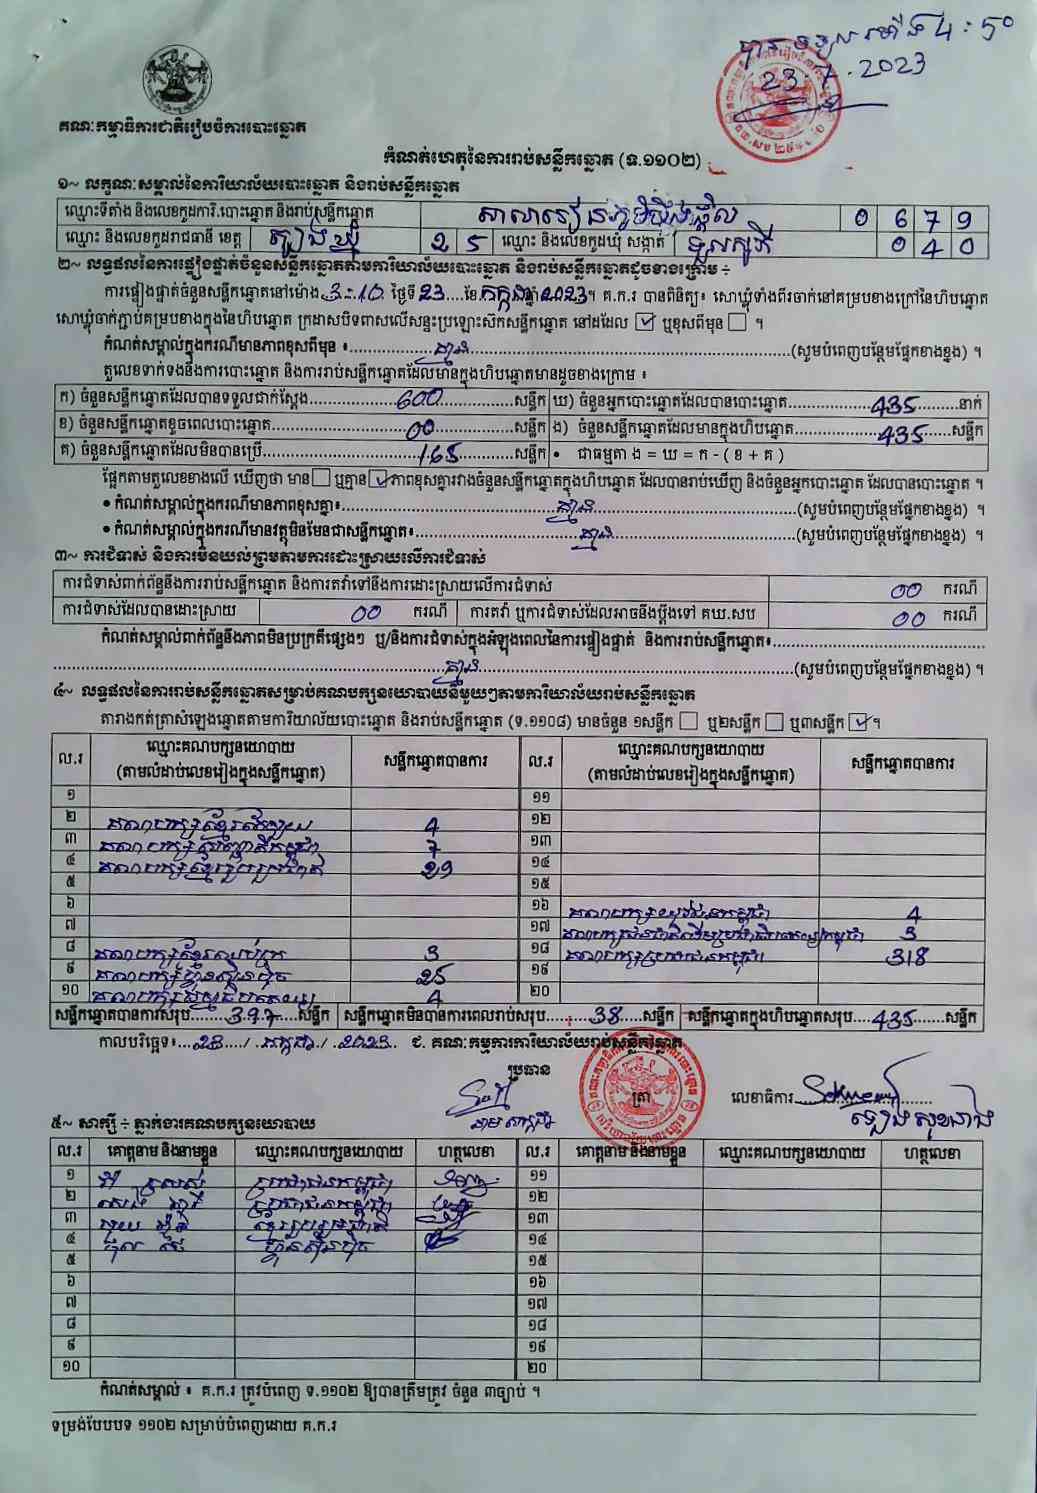 បានទទួលម៉ោង 4:50
23.7.2023
គណៈកម្មាធិការជាតិរៀបចំការបោះឆ្នោត
កំណត់ហេតុនៃការរាប់សន្លឹកឆ្នោត (ទ.១១០២)
១~ លក្ខណៈសម្គាល់នៃការិយាល័យបោះឆ្នោត និងរាប់សន្លឹកឆ្នោត
ឈ្មោះទីតាំង និងលេខកូដការិ.បោះឆ្នោត និងរាប់សន្លឹកឆ្នោត សាលារៀនភូមិ 0 6 7 9
ឈ្មោះ និងលេខកូដរាជធានី ខេត្ត ត្បូងឃ្មុំ 2 5 ឈ្មោះ និងលេខកូដឃុំ សង្កាត់ ទួលសូភី 0 4 0
២~ លទ្ធផលនៃការផ្ទៀងផ្ទាត់ចំនួនសន្លឹកឆ្នោតតាមការិយាល័យបោះឆ្នោត និងរាប់សន្លឹកឆ្នោតដូចខាងក្រោម ÷
ការផ្ទៀងផ្ទាត់ចំនួនសន្លឹកឆ្នោតនៅម៉ោង 3:10 ថ្ងៃទី 23 ខែ កក្កដា ឆ្នាំ 2023 ។ គ.ក.រ បានពិនិត្យ៖ សោឃ្លុំទាំងពីរចាក់នៅគម្របខាងក្រៅនៃហិបឆ្នោត
សោឃ្លុំចាក់ភ្ជាប់គម្របខាងក្នុងនៃហិបឆ្នោត ក្រដាសបិទពាសលើសន្ទះប្រឡោះស៊កសន្លឹកឆ្នោត នៅដដែល ☑ ឬខុសពីមុន ☐ ។
កំណត់សម្គាល់ក្នុងករណីមានភាពខុសពីមុន ៖ គ្មាន (សូមបំពេញបន្ថែមផ្នែកខាងខ្នង) ។
តួលេខទាក់ទងនឹងការបោះឆ្នោត និងការរាប់សន្លឹកឆ្នោតដែលមានក្នុងហិបឆ្នោតមានដូចខាងក្រោម ៖
ក) ចំនួនសន្លឹកឆ្នោតដែលបានទទួលជាក់ស្តែង 600 សន្លឹក ឃ) ចំនួនអ្នកបោះឆ្នោតដែលបានបោះឆ្នោត 435 នាក់
ខ) ចំនួនសន្លឹកឆ្នោតខូចពេលបោះឆ្នោត 00 សន្លឹក ង) ចំនួនសន្លឹកឆ្នោតដែលមានក្នុងហិបឆ្នោត 435 សន្លឹក
គ) ចំនួនសន្លឹកឆ្នោតដែលមិនបានប្រើ 165 សន្លឹក • ជាធម្មតា ង = ឃ = ក - ( ខ + គ )
ផ្អែកតាមតួលេខខាងលើ ឃើញថា មាន ☐ ឬគ្មាន ☑ ភាពខុសគ្នារវាងចំនួនសន្លឹកឆ្នោតក្នុងហិបឆ្នោត ដែលបានរាប់ឃើញ និងចំនួនអ្នកបោះឆ្នោត ដែលបានបោះឆ្នោត ។
• កំណត់សម្គាល់ក្នុងករណីមានភាពខុសគ្នា៖ គ្មាន (សូមបំពេញបន្ថែមផ្នែកខាងខ្នង) ។
• កំណត់សម្គាល់ក្នុងករណីមានវត្ថុមិនមែនជាសន្លឹកឆ្នោត៖ គ្មាន (សូមបំពេញបន្ថែមផ្នែកខាងខ្នង) ។
៣~ ការជំទាស់ និងការមិនយល់ព្រមតាមការដោះស្រាយលើការជំទាស់
ការជំទាស់ពាក់ព័ន្ធនឹងការរាប់សន្លឹកឆ្នោត និងការតវ៉ាទៅនឹងការដោះស្រាយលើការជំទាស់ 00 ករណី
ការជំទាស់ដែលបានដោះស្រាយ 00 ករណី ការតវ៉ា ឬការជំទាស់ដែលអាចនឹងប្តឹងទៅ គឃ.សប 00 ករណី
កំណត់សម្គាល់ពាក់ព័ន្ធនឹងភាពមិនប្រក្រតីផ្សេងៗ ឬ/និងការជំទាស់ក្នុងអំឡុងពេលនៃការផ្ទៀងផ្ទាត់ និងការរាប់សន្លឹកឆ្នោត៖
គ្មាន (សូមបំពេញបន្ថែមផ្នែកខាងខ្នង) ។
៤~ លទ្ធផលនៃការរាប់សន្លឹកឆ្នោតសម្រាប់គណបក្សនយោបាយនីមួយៗតាមការិយាល័យរាប់សន្លឹកឆ្នោត
តារាងកត់ត្រាសំឡេងឆ្នោតតាមការិយាល័យបោះឆ្នោត និងរាប់សន្លឹកឆ្នោត (ទ.១១០៨) មានចំនួន ១សន្លឹក ☐ ឬ២សន្លឹក ☐ ឬ៣សន្លឹក ☑ ។
ល.រ ឈ្មោះគណបក្សនយោបាយ (តាមលំដាប់លេខរៀងក្នុងសន្លឹកឆ្នោត) សន្លឹកឆ្នោតបានការ ល.រ ឈ្មោះគណបក្សនយោបាយ (តាមលំដាប់លេខរៀងក្នុងសន្លឹកឆ្នោត) សន្លឹកឆ្នោតបានការ
១ ១១
២ គណបក្សខ្មែរ 4 ១២
៣ គណបក្សសញ្ជាតិកម្ពុជា 7 ១៣
៤ គណបក្សខ្មែររួបរួមជាតិ 29 ១៤
៥ ១៥
៦ ១៦ គណបក្សយុវជនកម្ពុជា 4
៧ ១៧ 3
៨ គណបក្សខ្មែរ 3 ១៨ គណបក្សប្រជាជនកម្ពុជា 318
៩ គណបក្សហ្វ៊ុនស៊ិនប៉ិច 25 ១៩
១០ 4 ២០
សន្លឹកឆ្នោតបានការសរុប 397 សន្លឹក សន្លឹកឆ្នោតមិនបានការពេលរាប់សរុប 38 សន្លឹក សន្លឹកឆ្នោតក្នុងហិបឆ្នោតសរុប 435 សន្លឹក
កាលបរិច្ឆេទ៖ 23 / កក្កដា / 2023 ជ. គណៈកម្មការការិយាល័យរាប់សន្លឹកឆ្នោត
ប្រធាន ត្រា លេខាធិការ
៥~ សាក្សី ÷ ភ្នាក់ងារគណបក្សនយោបាយ
ល.រ គោត្តនាម និងនាមខ្លួន ឈ្មោះគណបក្សនយោបាយ ហត្ថលេខា ល.រ គោត្តនាម និងនាមខ្លួន ឈ្មោះគណបក្សនយោបាយ ហត្ថលេខា
១ ប្រជាជនកម្ពុជា ១១
២ ប្រជាជនកម្ពុជា ១២
៣ ខ្មែររួបរួមជាតិ ១៣
៤ ហ្វ៊ុនស៊ិនប៉ិច ១៤
៥ ១៥
៦ ១៦
៧ ១៧
៨ ១៨
៩ ១៩
១០ ២០
កំណត់សម្គាល់ ៖ គ.ក.រ ត្រូវបំពេញ ទ.១១០២ ឱ្យបានត្រឹមត្រូវ ចំនួន ៣ច្បាប់ ។
ទម្រង់បែបបទ ១១០២ សម្រាប់បំពេញដោយ គ.ក.រ